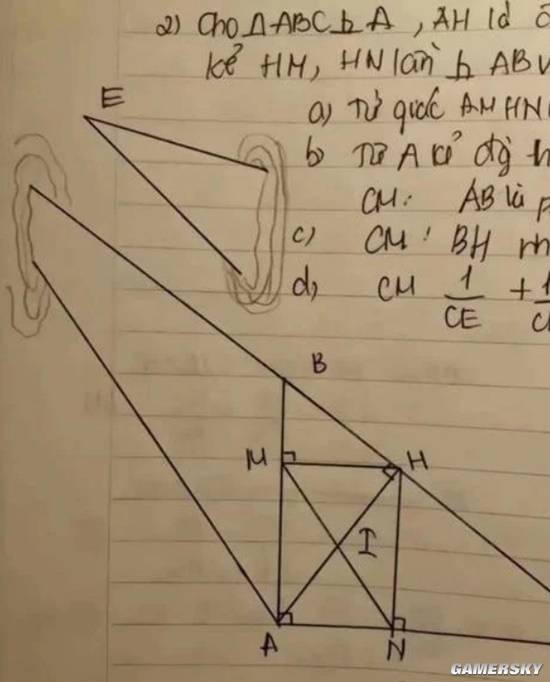 2) Cho ΔABC ⊥ A, AH là
kẻ HM, HN lần ⊥ AB
E
a) Tứ giác AMHN
b) Từ A kẻ đg
CM: AB là
c) CM: BH
d) CM 1/CE + 1/C
B
M
H
I
A
N
GAMERSKY